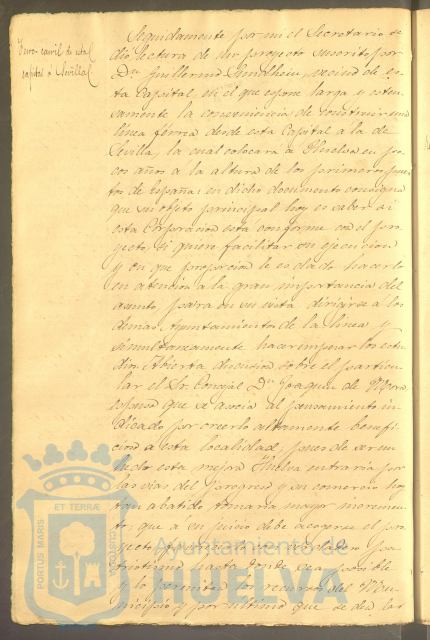 Ferro-carril de esta
capital á Sevilla
Seguidamente por mi el Secretario se
dió lectura de un proyecto suscrito por
Dn Guillermo Sundheim, vecino de es-
ta Capital, en el que espone larga y esten-
samente la conveniencia de construir una
línea férrea desde esta Capital á la de
Sevilla, la cual colocará á Huelva en po-
cos años a la altura de los primeros puer-
tos de España: en dicho documento consigna
que su objeto principal hoy es saber si
esta Corporacion está conforme con el pro-
yecto, si quiere facilitar su ejecucion
y en que proporcion le es dado hacerlo
en atencion á la gran importancia del
asunto, para en su vista dirigirse á los
demas Ayuntamientos de la línea y
simultaneamente hacer empezar los estu-
dios. Abierta discusion sobre el particu-
lar el Sr. Concejal Dn Joaquin de Mora
espuso que se asocia al pensamiento in-
dicado por creerlo altamente benefi-
cioso a esta localidad, pues de ser un
hecho esta mejora Huelva entraria por
las vias del Progreso y su comercio hoy
tan abatido tomaria mayor incremen-
to; que a su juicio debe acogerse el pro-
yecto y
hasta donde sea posible
y lo permitan los recursos del Mu-
nicipio y por ultimo que se den las
PORTUS MARIS ET TERRÆ CUSTODIA
Ayuntamiento de
HUELVA